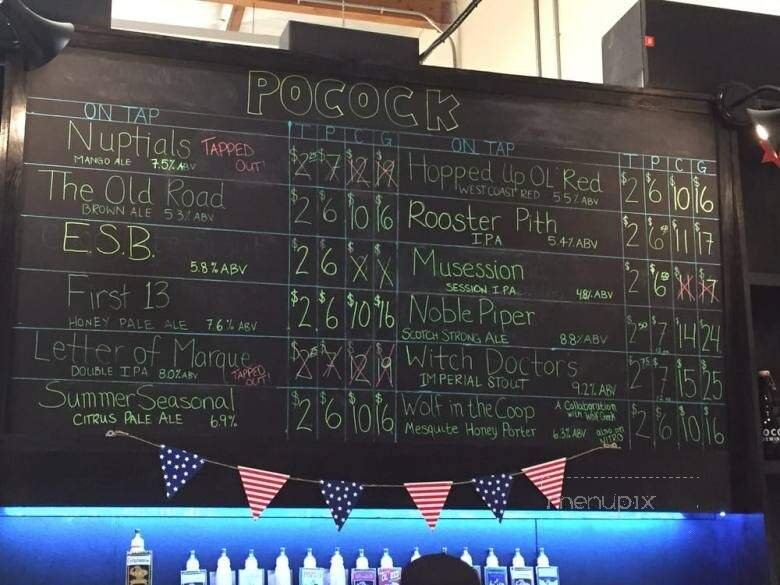 POCOCK
ON TAP T P C G
Nuptials TAPPED OUT!
MANGO ALE 7.5% ABV
The Old Road $2 $6 $10 $16
BROWN ALE 5.3% ABV
E.S.B. $2 $6 X X
5.8% ABV
First 13 $2 $6 $10 $16
HONEY PALE ALE 7.6% ABV
Letter of Marque
DOUBLE IPA 8.0% ABV TAPPED OUT!
Summer Seasonal $2 $6 $10 $16
CITRUS PALE ALE 6.9%
ON TAP T P C G
Hopped Up OL' Red $2 $6 $10 $16
WEST COAST RED 5.5% ABV
Rooster Pith $2 $6 $11 $17
IPA 5.4% ABV
Musession $2 $6
SESSION IPA 4.8% ABV
Noble Piper $2.50 $7 $14 $24
SCOTCH STRONG ALE 8.8% ABV
Witch Doctors $2.75 $7 $15 $25
IMPERIAL STOUT 9.2% ABV
Wolf in the Coop A Collaboration with Wolf Creek $2 $6 $10 $16
Mesquite Honey Porter 6.3% ABV also on NITRO
menupix